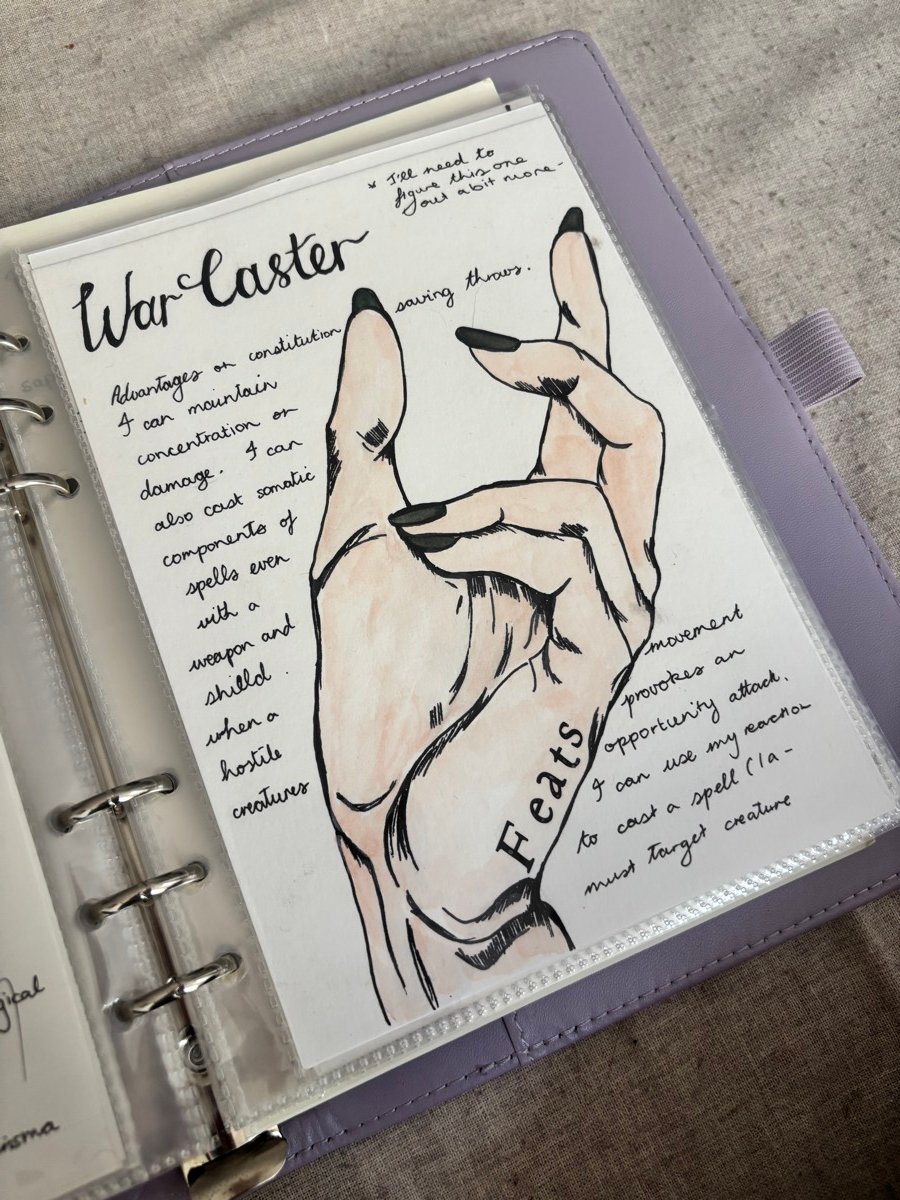 * I'll need to
figure this one
out a bit more-
War Caster
Advantages on constitution saving throws.
I can mountain
concentration or
damage. I can
also cast somatic
components of
spells even
with a
weapon and
shilld.
when a
hostile
creatures
movement
provokes an
opportunity attack.
I can use my reaction
to cast a spell (1a-
must target creature
Feats
gical
risma